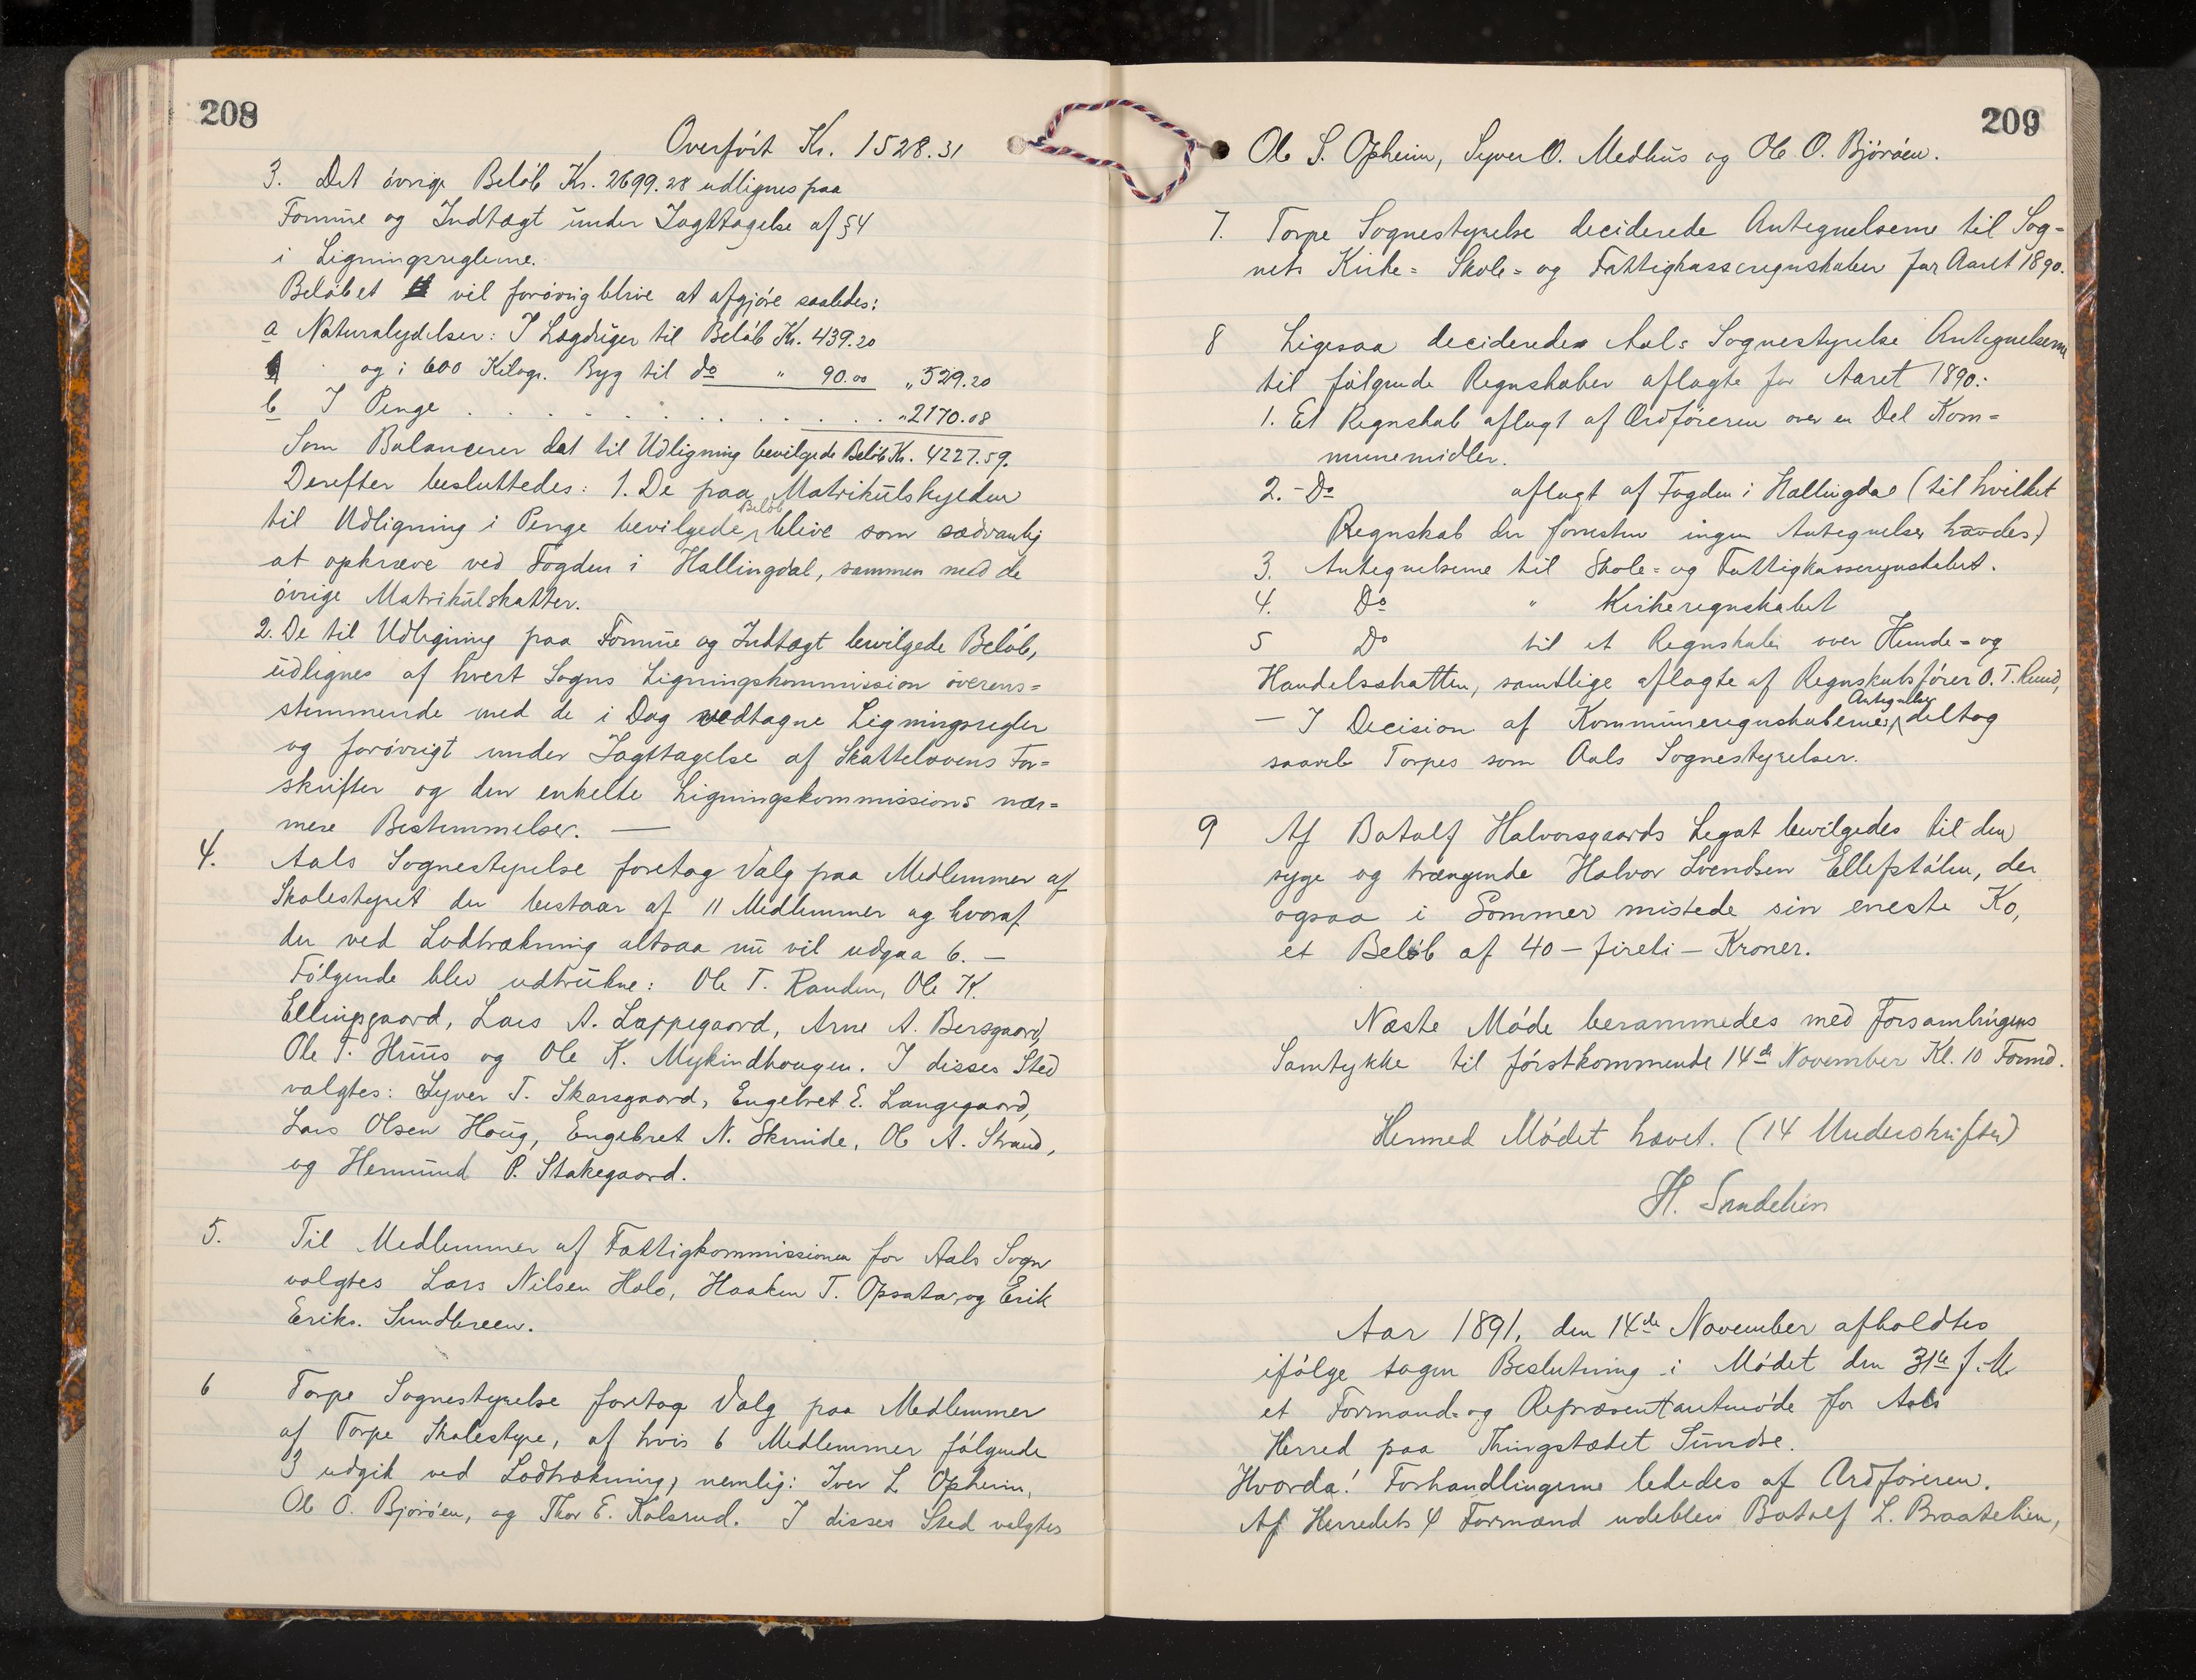 208
Overført Kr. 1528.31
3. Det øvrige Beløb Kr. 2699.28 udlignes paa
Formue og Indtægt under Iagttagelse af §4
i Ligningsreglerne.
Beløbet vil forøvrig blive at afgjøre saaledes:
a Naturalydelser: I Lægdsuger til Beløb Kr. 439.20
og i 600 Kilogr. Byg til do " 90.00 " 529.20
b I Penge . . . . . . . . . . . . " 2170.08
Som Balancerer det til Udligning bevilgede Beløb Kr. 4227.59.
Derefter besluttedes: 1. De paa Matrikulskylden
til Udligning i Penge bevilgede Beløb blive som sædvanlig
at opkræve ved Fogden i Hallingdal, sammen med de
øvrige Matrikulskatter.
2. De til Udligning paa Formue og Indtægt bevilgede Beløb,
udlignes af hvert Sogns Ligningskommission overens=
stemmende med de i Dag vedtagne Ligningsregler
og forøvrigt under Iagttagelse af Skattelovens For=
skrifter og den enkelte Ligningskommissions nær=
mere Bestemmelser. —
4. Aals Sognestyrelse foretog Valg paa Medlemmer af
Skolestyret der bestaar af 11 Medlemmer og hvoraf
der ved Lodtrækning altsaa nu vil udgaa 6. —
Følgende blev udtrukne: Ole T. Randen, Ole K.
Ellingsgaard, Lars A. Lappegaard, Arne A. Bersgaard,
Ole T. Huus og Ole K. Mykindhaugen. I disses Sted
valgtes: Syver T. Skarsgaard, Engebret E. Langegaard,
Lars Olsen Houg, Engebret N. Skrinde, Ole A. Strand,
og Hermund P. Stakegaard.
5. Til Medlemmer af Fattigkommissionen for Aals Sogn
valgtes Lars Nilsen Holo, Haaken T. Opsata, og Erik
Eriks. Sundbreen.
6 Torpe Sognestyrelse foretog Valg paa Medlemmer
af Torpe Skolestyre, af hvis 6 Medlemmer følgende
3 udgik ved Lodtrækning, nemlig: Iver L Opheim,
Ole O. Bjørøen, og Thor E. Kolsrud. I disses Sted valgtes
209
Ole S. Opheim, Syver O. Medhus og Ole O. Bjørøen.
7. Torpe Sognestyrelse deciderede Antegnelserne til Sog=
nets Kirke= Skole= og Fattigkasseregnskaber for Aaret 1890.
8 Ligesaa decideredes Aals Sognestyrelse Antegnelserne
til følgende Regnskaber aflagte for Aaret 1890:
1. Et Regnskab aflagt af Ordføreren over en Del Kom=
munemidler.
2. - Do aflagt af Fogden i Hallingdal (til hvilket
Regnskab der forresten ingen Antegnelser havdes)
3. Antegnelserne til Skole= og Fattigkasseregnskabet.
4. Do " Kirkeregnskabet
5 Do til et Regnskab over Hunde= og
Handelsskatten, samtlige aflagte af Regnskabsfører O. T. Ruud,
— I Decision af Kommuneregnskabernes Antegnelser deltog
saavel Torpes som Aals Sognestyrelser.
9 Af Botolf Halvorsgaards Legat bevilgedes til den
syge og trængende Halvor Svendsen Ellefstølen, der
ogsaa i Sommer mistede sin eneste Ko,
et Beløb af 40 — fireti — Kroner.
Næste Møde berammedes med Forsamlingens
Samtykke til førstkommende 14de November Kl. 10 Formd.
Hermed Mødet hævet. (14 Underskrifter)
H. Sundehin
Aar 1891, den 14de November afholdtes
ifølge tagen Beslutning i Mødet den 31te f. M
et Formand- og Repræsentantmøde for Aals
Herred paa Thingstædet Sundre.
Hvorda! Forhandlingerne lededes af Ordføreren.
Af Herredets 4 Formænd udeblev Botolf L. Braatelien,